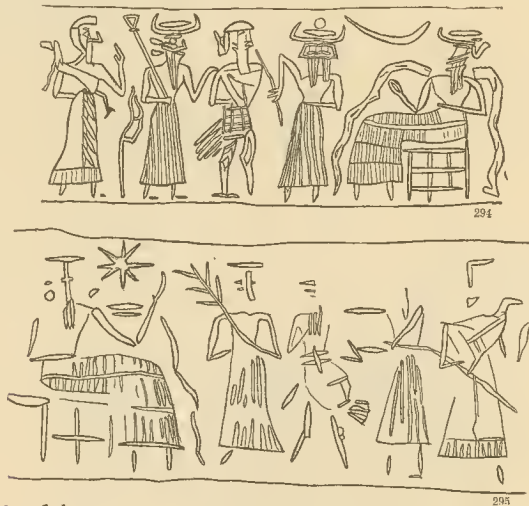 294
295